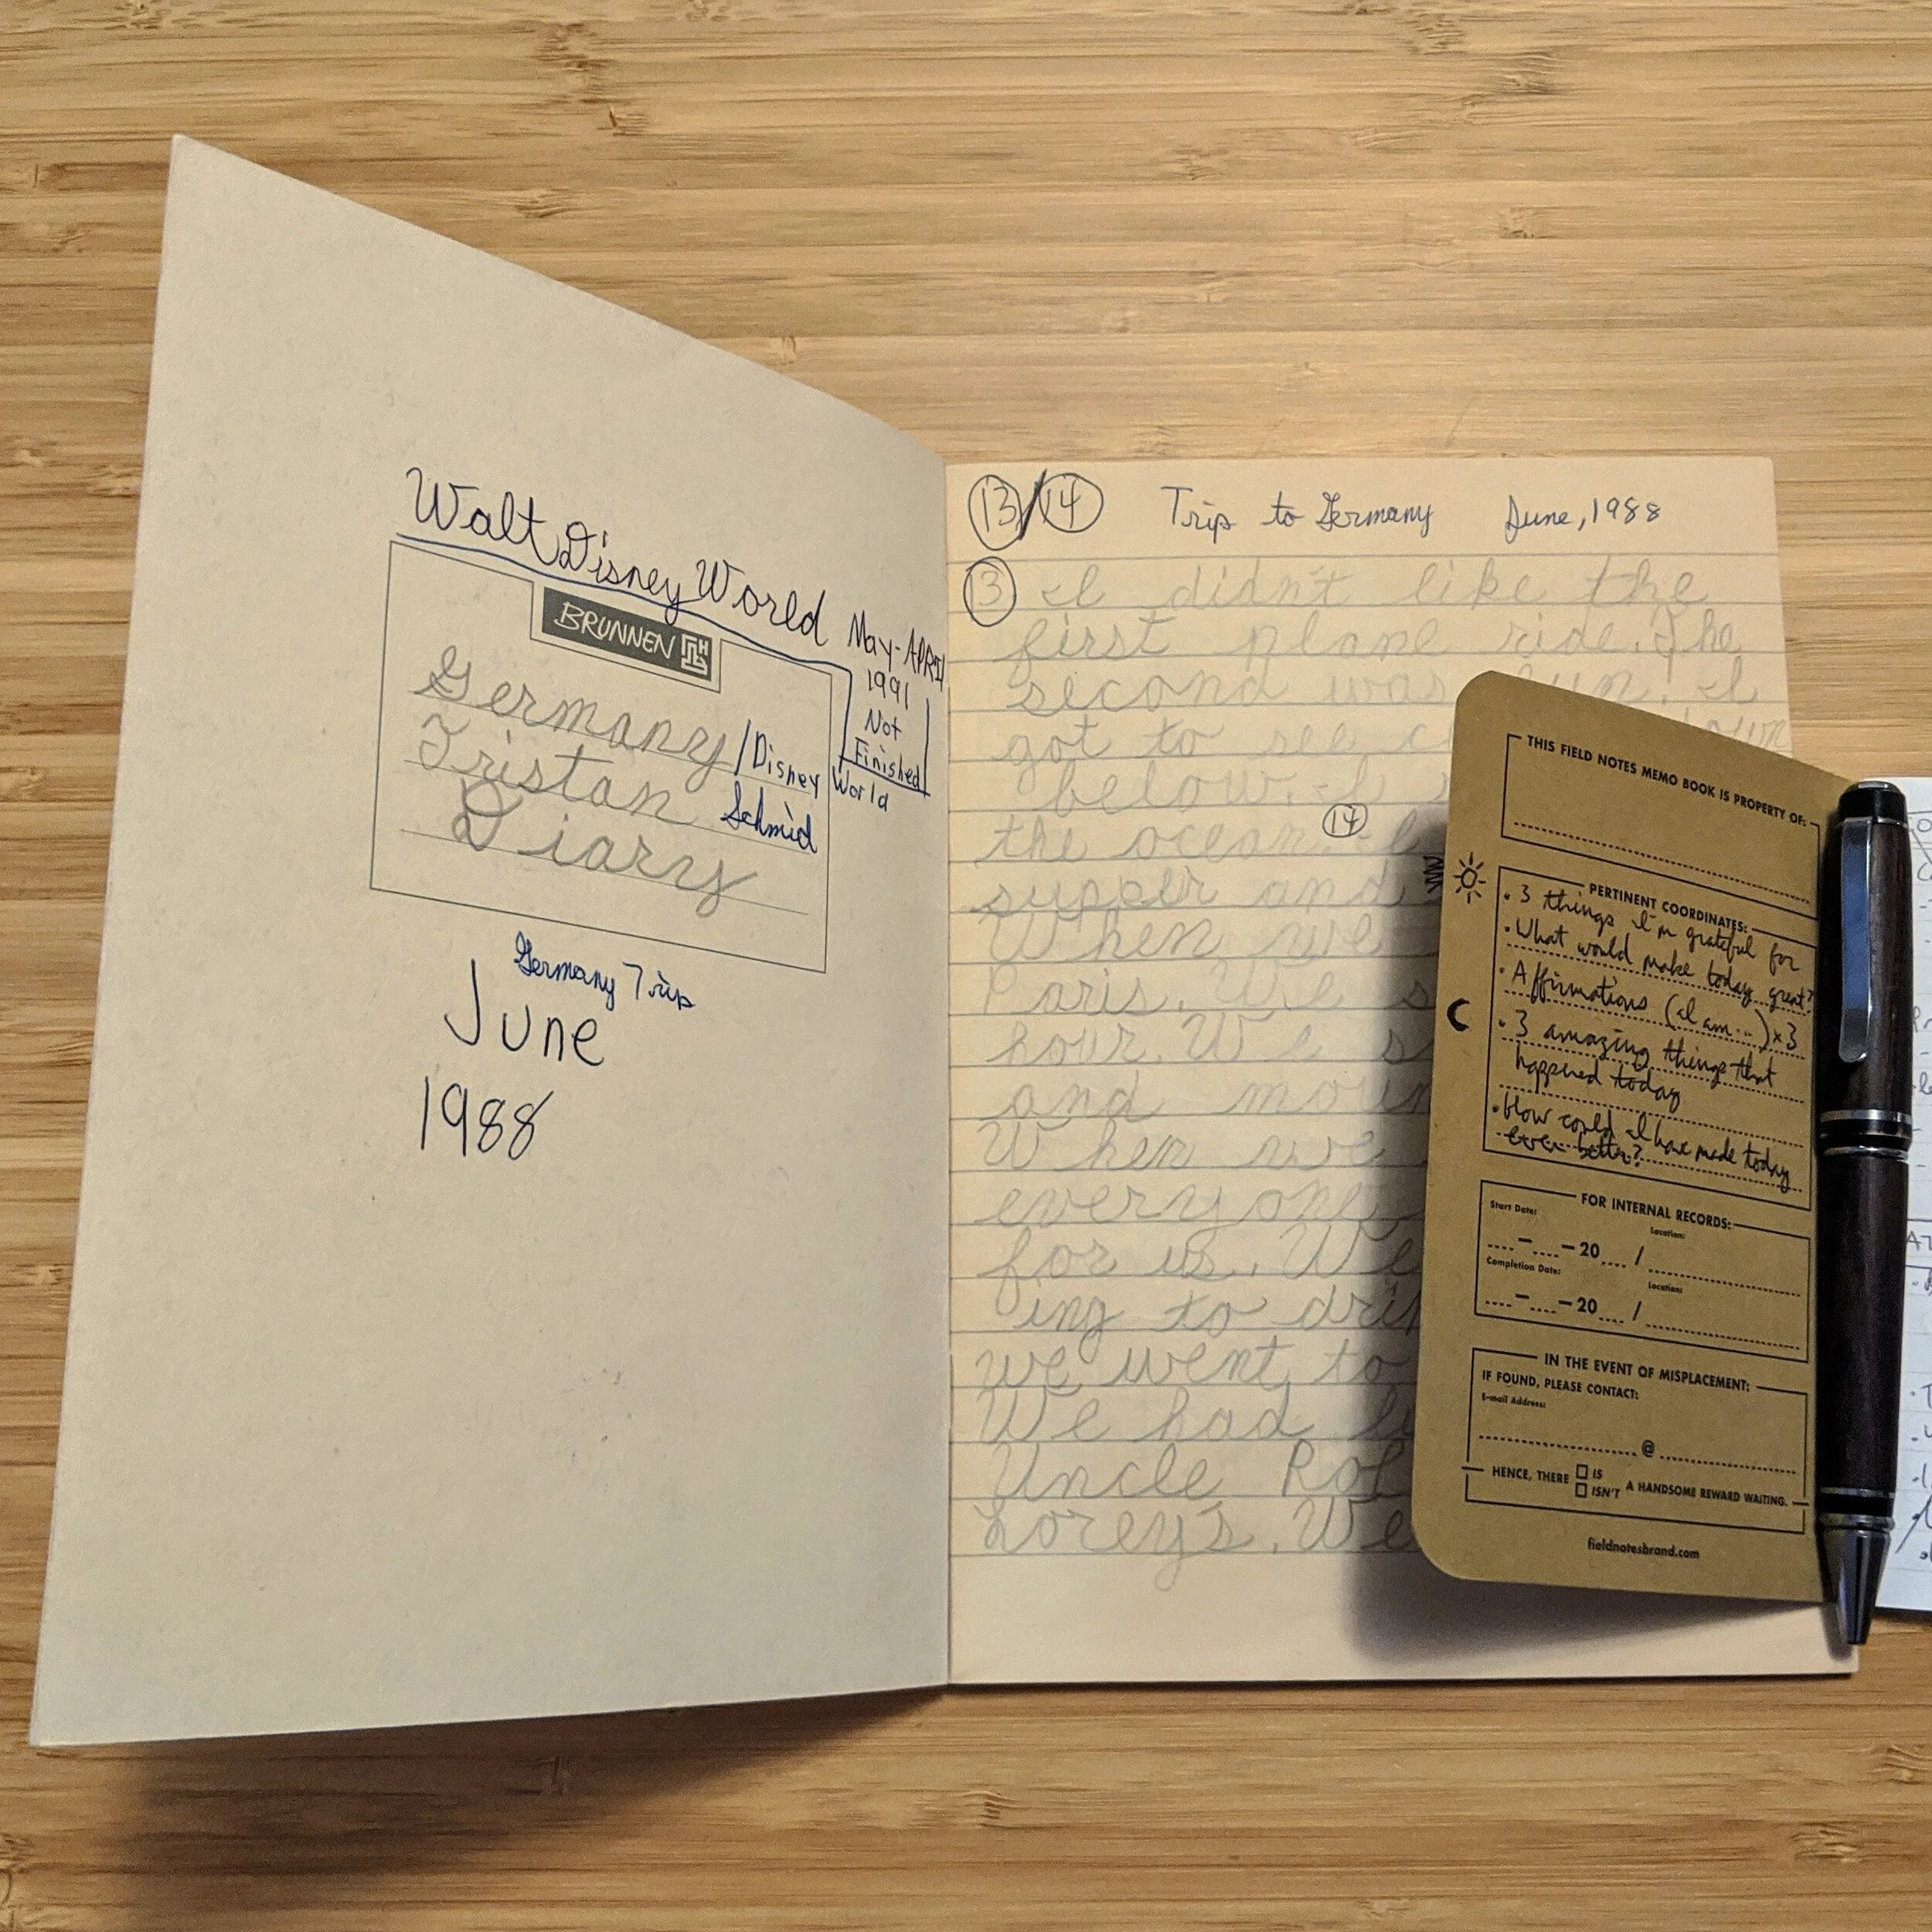 Walt Disney World
May-APRIL
1991
Not
Finished
BRUNNEN
Germany/Disney World
Tristan Schmid
Diary
Germany Trip
June
1988
13/14 Trip to Germany June, 1988
13 I didn't like the
first plane ride. The
second was fun. I
got to see
below. I
the ocean. 14 I
supper and
When we
Paris. We
hour. We
and
When we
everyone
for us. We
ing to
we went to
We had
Uncle
Lorey's. We
THIS FIELD NOTES MEMO BOOK IS PROPERTY OF:
PERTINENT COORDINATES:
• 3 things I'm grateful for
• What would make today great?
• Affirmations (I am...)x3
• 3 amazing things that
happened today
• How could I have made today
even better?
FOR INTERNAL RECORDS:
Start Date: Location:
-20 /
Completion Date: Location:
-20 /
IN THE EVENT OF MISPLACEMENT:
IF FOUND, PLEASE CONTACT:
E-mail Address:
@
HENCE, THERE IS
ISN'T A HANDSOME REWARD WAITING.
fieldnotesbrand.com